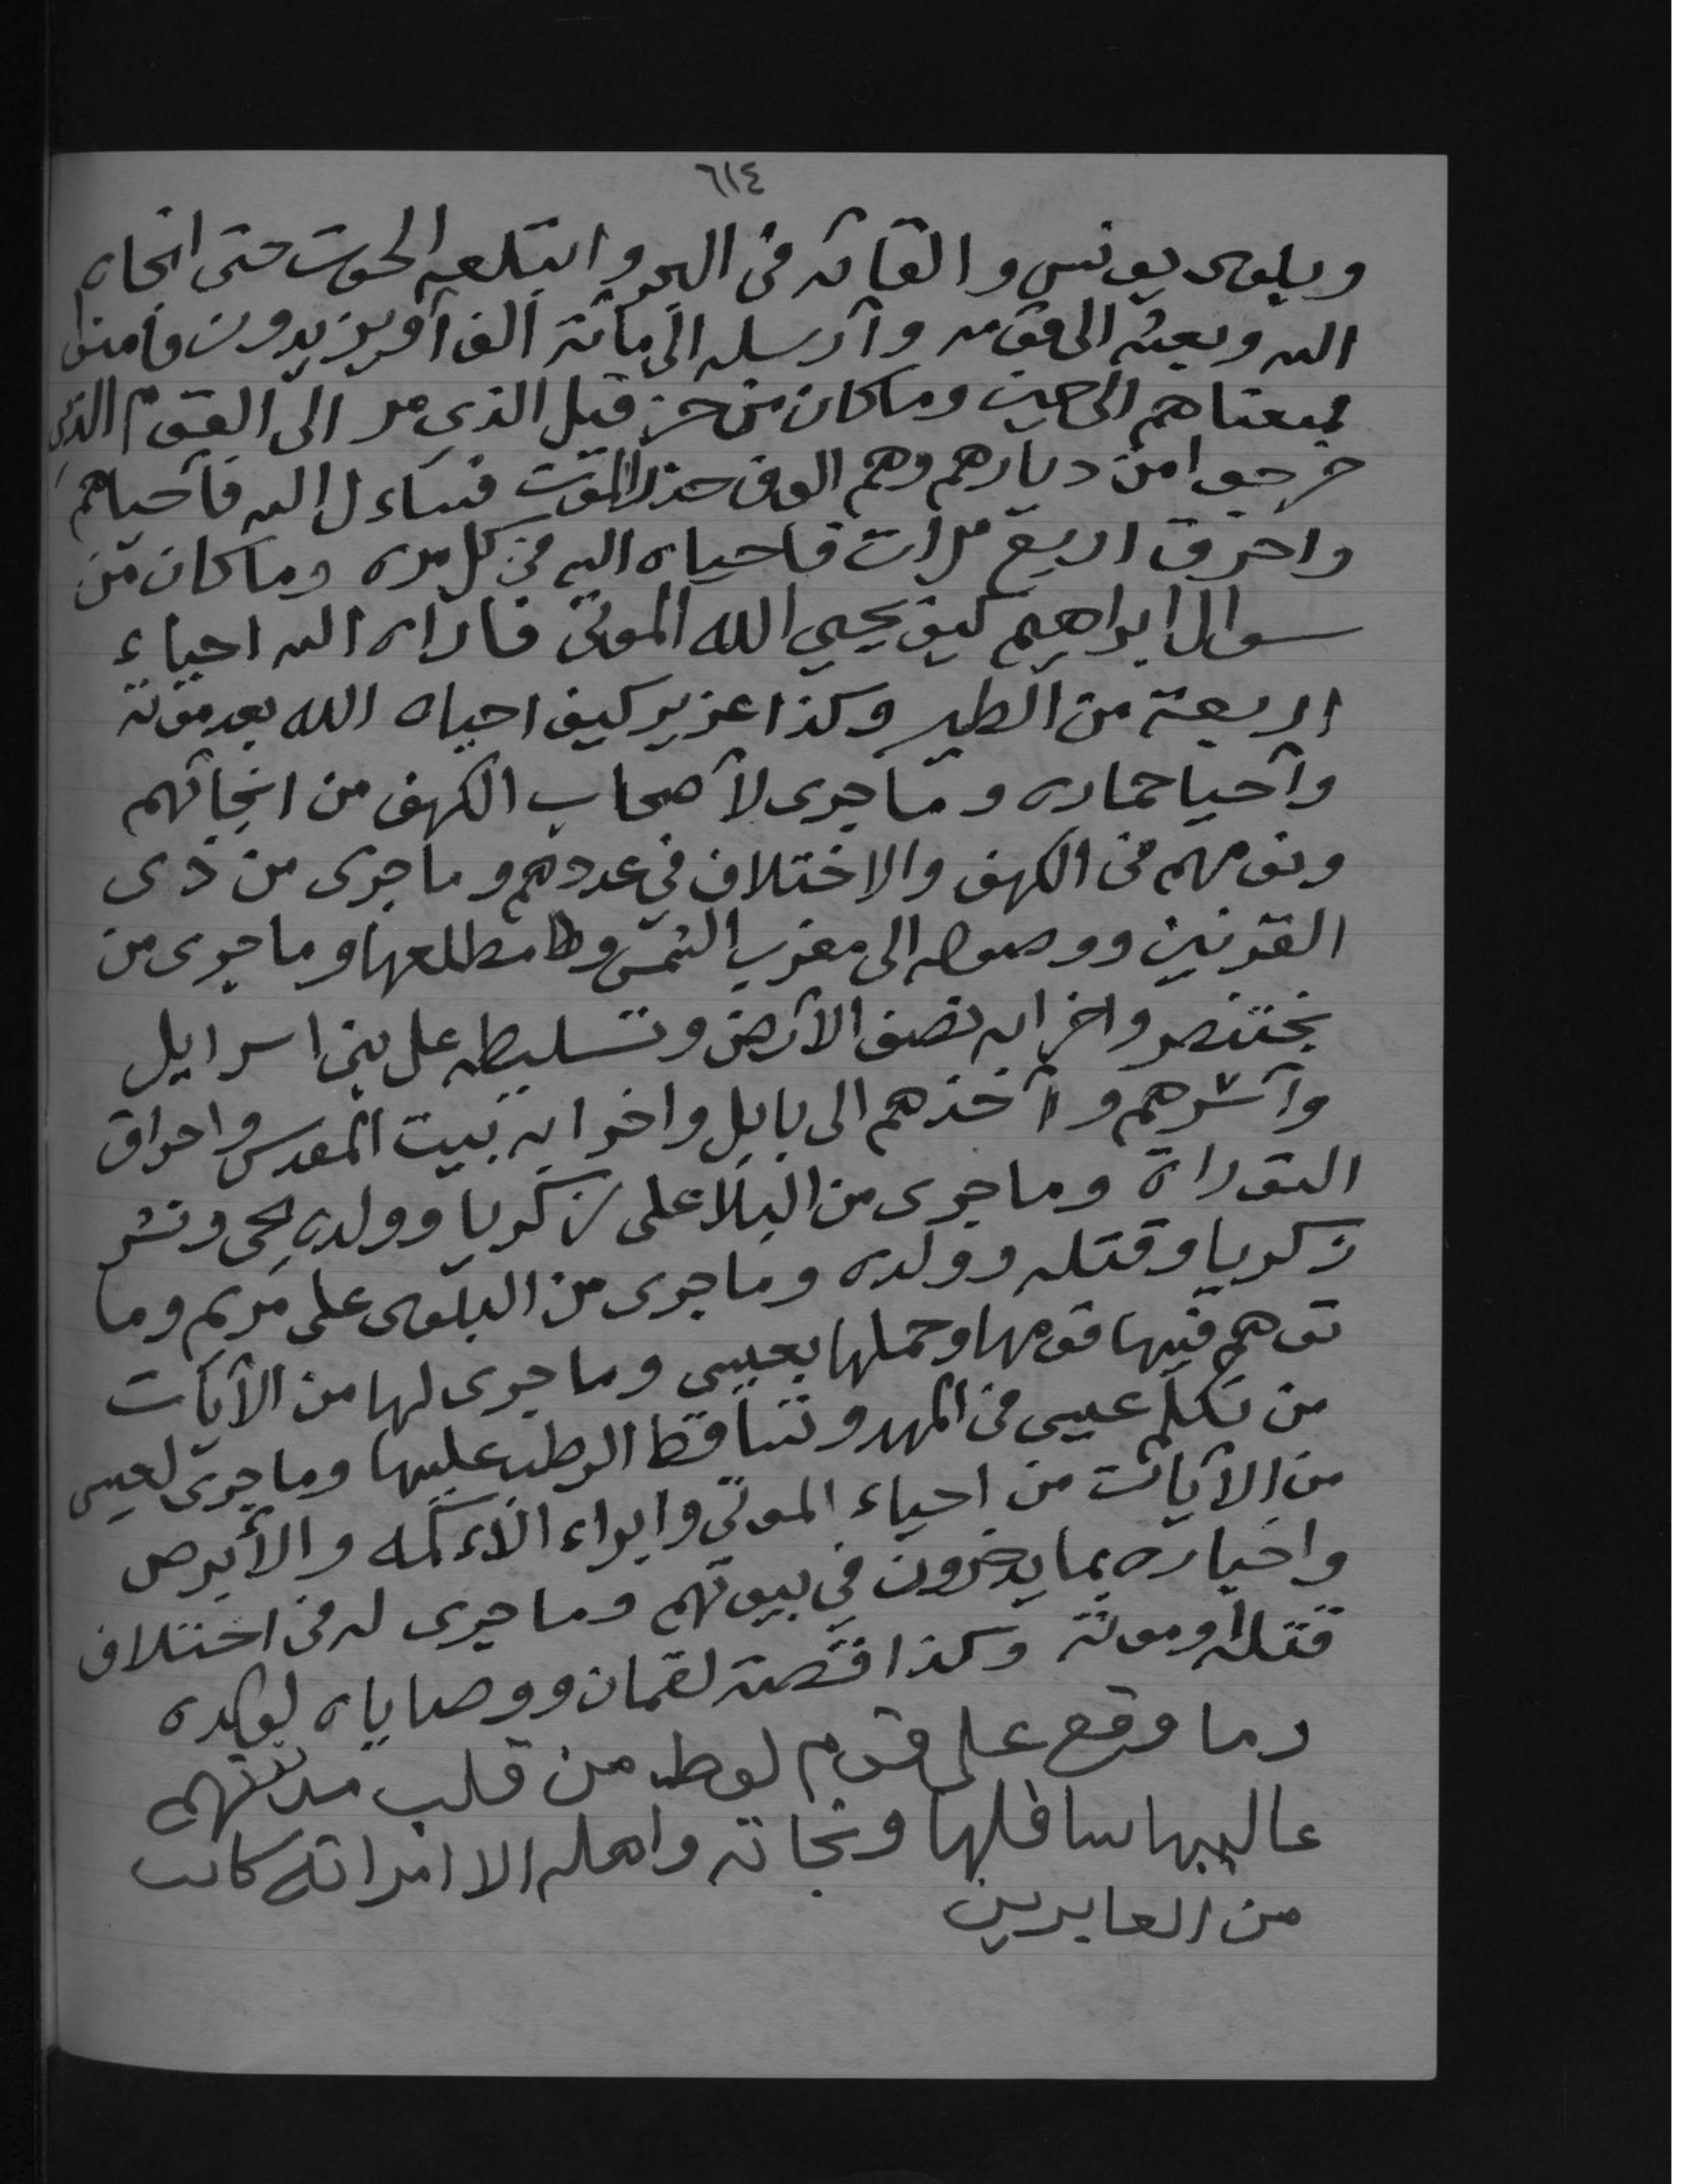 ٦١٤
وبلوى يونس والقائه في البحر وابتلعه الحوت حتى انجاه
الله وبعثه الى قومه وأرسله الى مائة ألف أو يزيدون فأمنوا
فمتعناهم الى حين وما كان من حزقيل الذي مر الى القوم الذي
خرجوا من ديارهم وهم الوف حذر الموت فساءل الله فأحياهم
واحرق اربع مرات فاحياه الله في كل مره وما كان من
سوال ابراهيم كيف يحيي الله الموتى فاراه الله احياء
اربعة من الطير وكذا عزير كيف احياه الله بعد موته
وأحيا حماره وما جرى لأصحاب الكهف من انجائهم
ونومهم في الكهف والاختلاف في عددهم وما جرى من ذى
القرنين ووصوله الى مغرب الشمس و مطلعها وما جرى من
بختنصر واخرابه نصف الأرض وتسليطه على بني اسرايل
وأسرهم وأخذهم الى بابل واخرابه بيت المقدس واحراق
التوراة وما جرى من البلا على زكريا وولده يحى ونشر
زكريا وقتله وولده وما جرى من البلوى على مريم وما
توهم فيها قومها وحملها بعيسى وما جرى لها من الآيات
من تكلم عيسى في المهد وتساقط الرطب عليها وما جرى لعيسى
من الآيات من احياء الموتى وابراء الأكمه والأبرص
واخباره بما يدخرون في بيوتهم وما جرى له في اختلاف
قتله وموته وكذا قصة لقمان ووصاياه لولده
وما وقع على قوم لوط من قلب مدينتهم
عاليها سافلها ونجاته واهله الا امراته كانت
من الغابرين